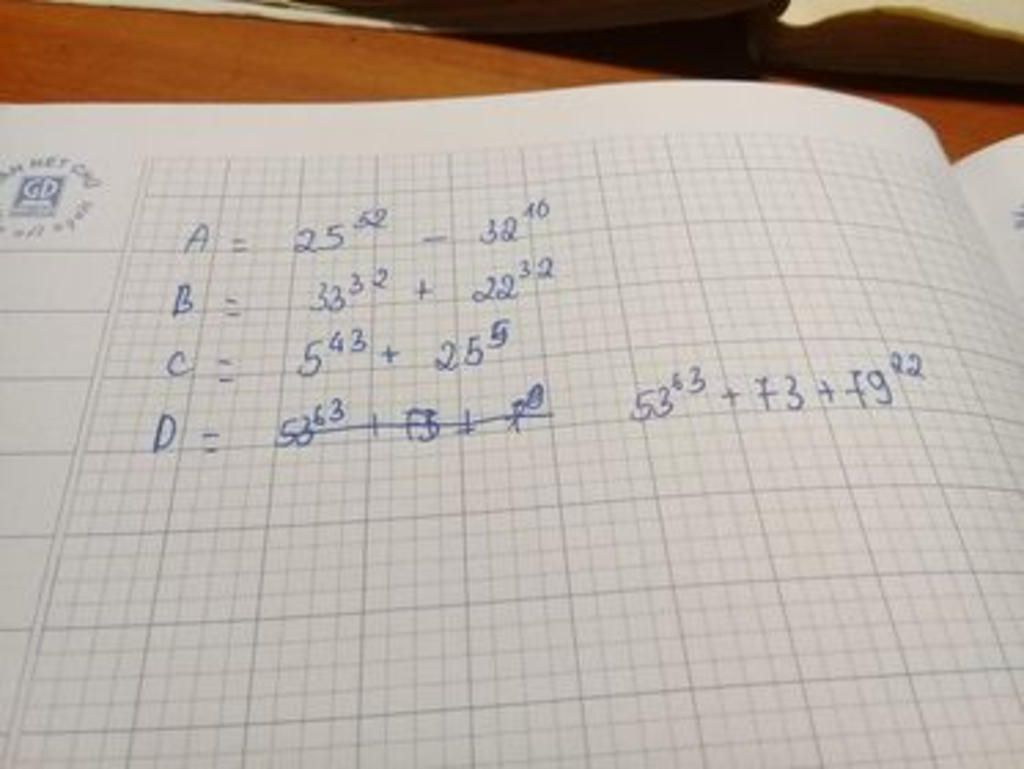 GD
A = 25⁵² - 32¹⁰
B = 33³² + 22³²
C = 5⁴³ + 25⁵
D = 53⁶³ + 73 + 7⁹ 53⁶³ + 73 + 79²²